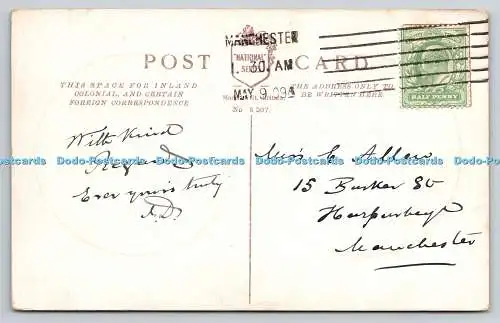 MANCHESTER
POST CARD
"NATIONAL"
SERIES
1. 30 AM
MAY 9 09
THIS SPACE FOR INLAND
COLONIAL, AND CERTAIN
FOREIGN CORRESPONDENCE
THE ADDRESS ONLY TO
BE WRITTEN HERE
No
HALF PENNY
With Kind
Regards
Ever yours truly
A.D.
Dodo-Postcards Dodo-Postcards Dodo-Postcards Dodo-Postcards Dodo-Postcards Dodo-Postcards
Miss C
15 Barker St
Harpurhey
Manchester